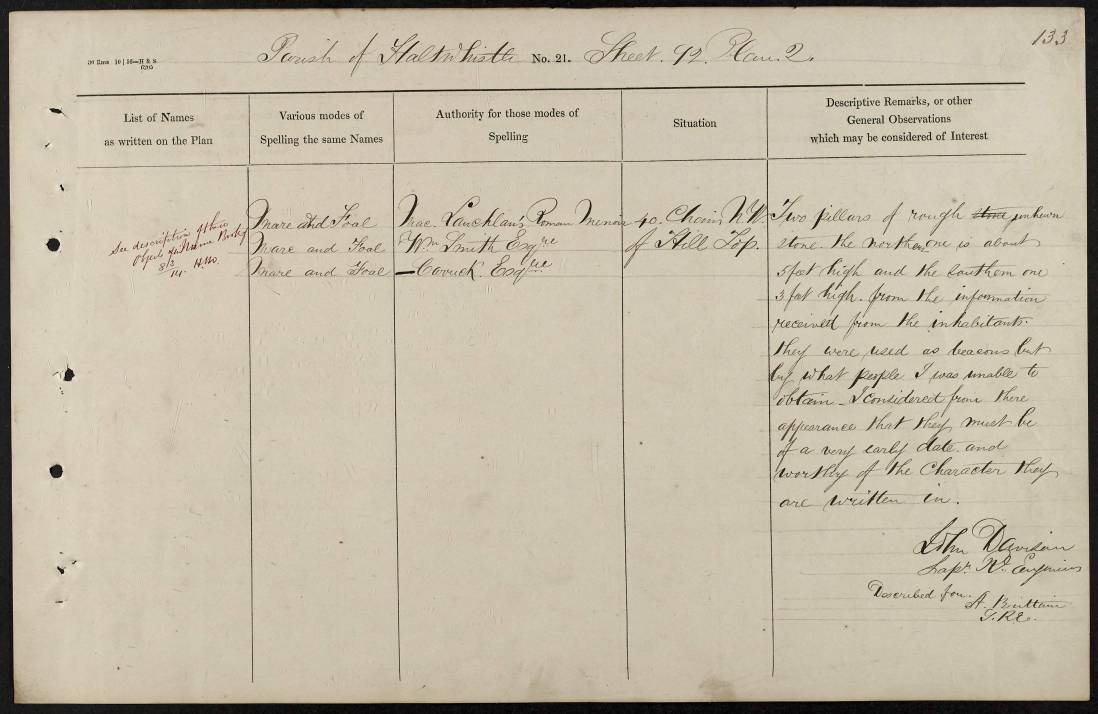 133
30 Rms 10 | 56—H & S
6205
Parish of Haltwhistle No. 21. Sheet. 92. Plan. 2.
List of Names
as written on the Plan
Various modes of
Spelling the same Names
Authority for those modes of
Spelling
Situation
Descriptive Remarks, or other
General Observations
which may be considered of Interest
See description of these
Objects
14. H.
Mare and Foal
Mare and Foal
Mare and Foal
Mac. Lauchlan's Roman Memoir
Wm. Smith Esqre
Esqre
40. Chains N.W.
of Hill Top.
Two pillars of rough stone unhewn
stone. the northern one is about
5 feet high and the southern one
3 feet high. from the information
received from the inhabitants.
they were used as beacons but
by what people I was unable to
obtain _ I considered from there
appearance that they must be
of a very early date. and
worthy of the Character they
are written in.
John Davison
Sapr. Rl. Engineers
Described for. A. Brittain
S.R.E.